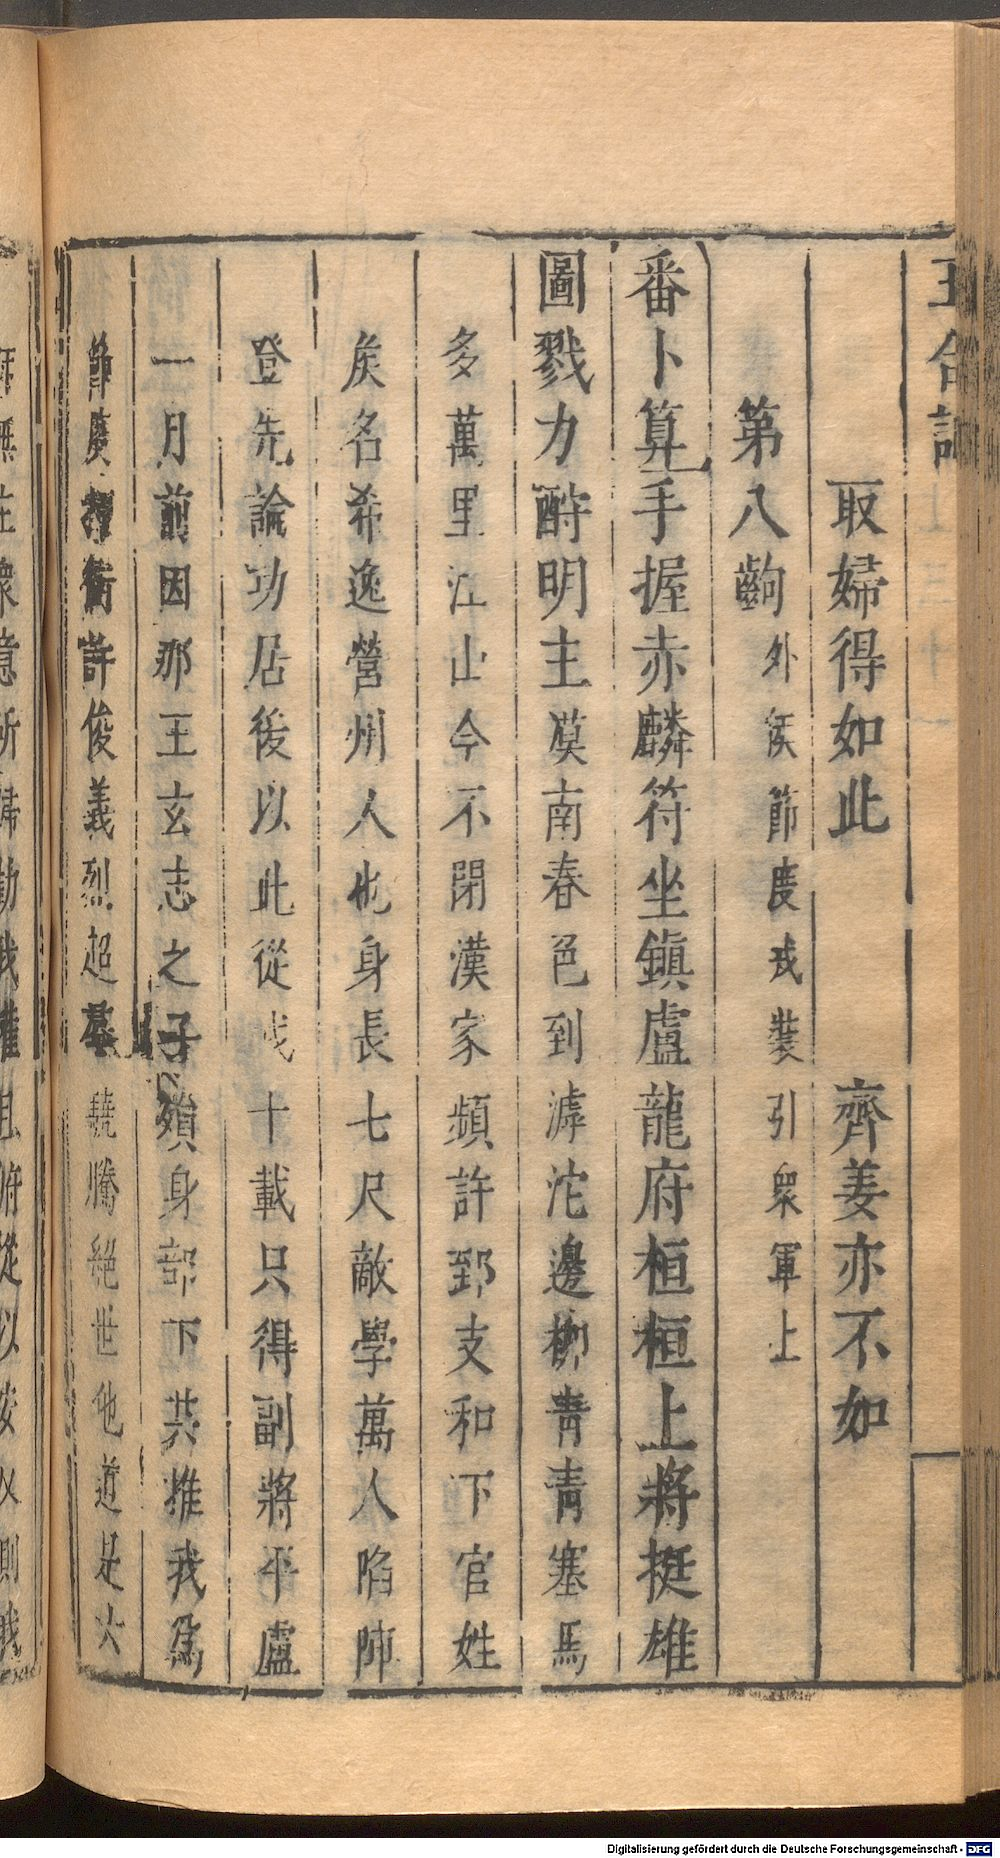 玉合記
取婦得如此　齊姜亦不如
第八齣 外侯節度戎裝引眾軍上
番卜算手握赤麟符坐鎮盧龍府桓桓上將挺雄
圖戮力酧明主漠南春色到滹沱邊柳青青塞馬
多萬里江山今不閉漢家頻許郅支和下官姓
矦名希逸營州人也身長七尺敵學萬人陷陣
登先論功居後以此從戎十載只得副將平盧
一月前因那王玄志之子殞身部下共推我為
俊義烈超羣驍騰絕世他道是大
Digitalisierung gefördert durch die Deutsche Forschungsgemeinschaft - DFG